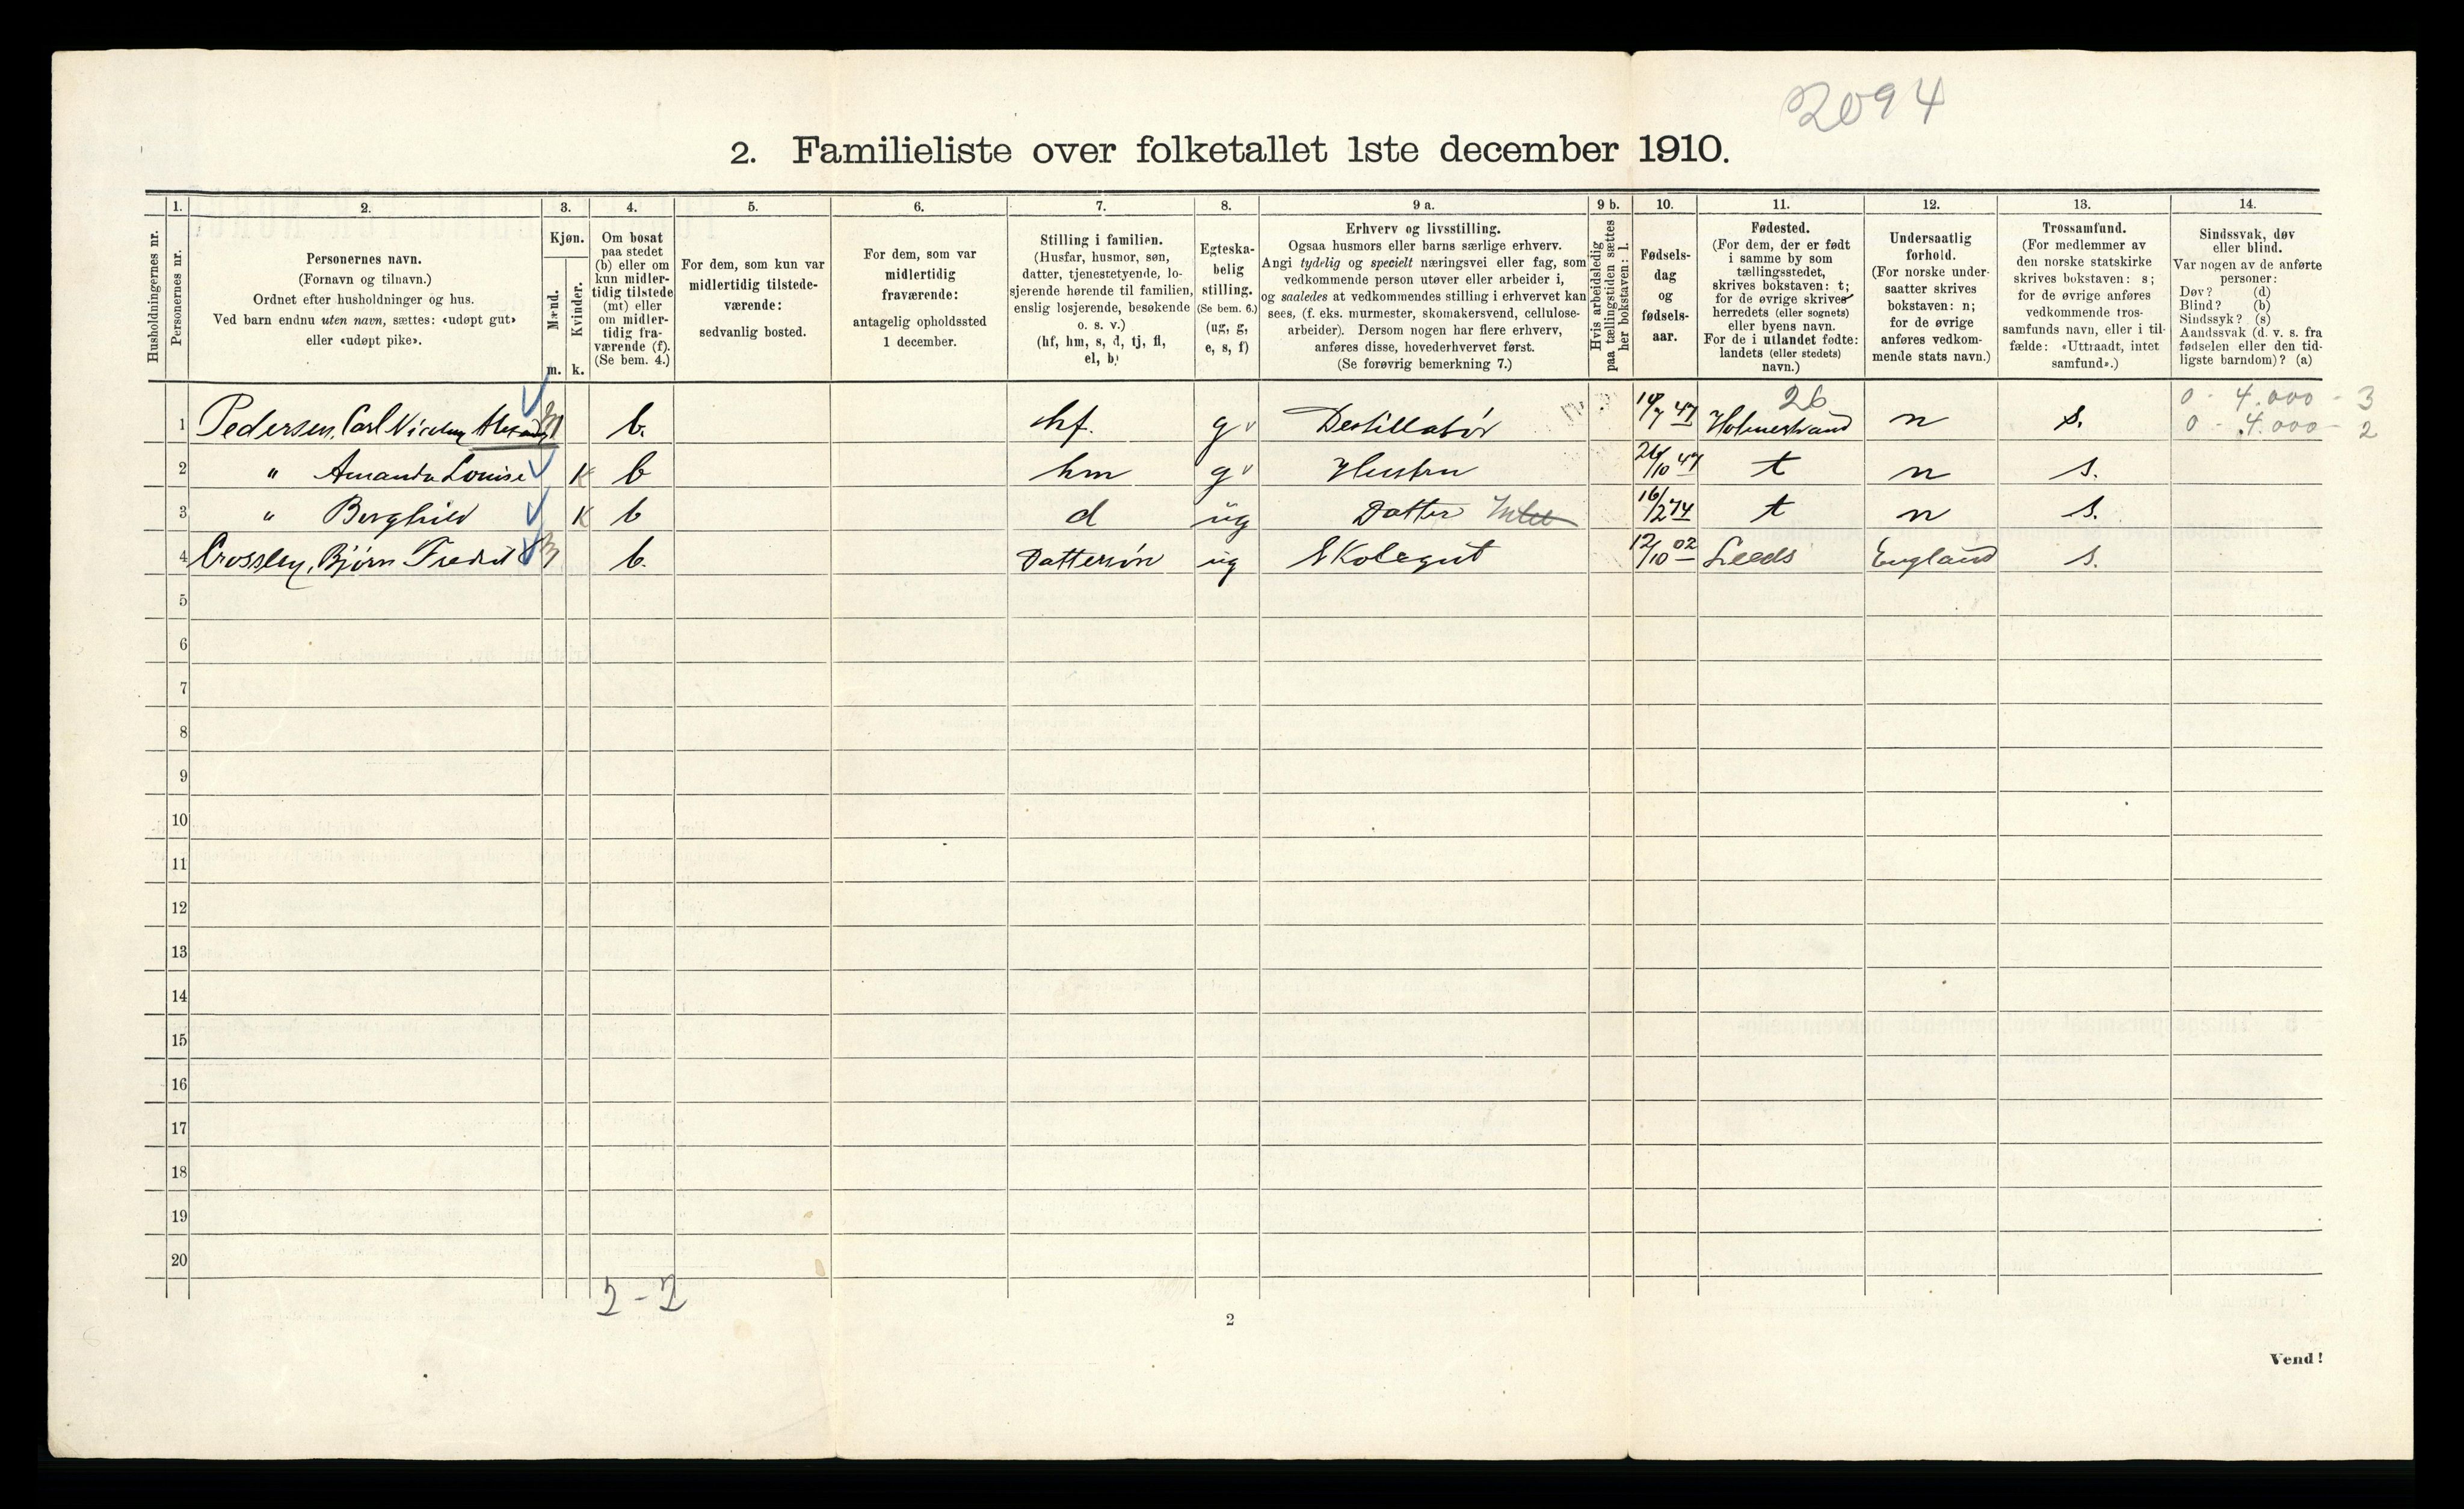 2094
2. Familieliste over folketallet 1ste december 1910.
1. 2. 3. 4. 5. 6. 7. 8. 9 a. 9 b. 10. 11. 12. 13. 14.
Husholdningernes nr.
Personernes nr.
Personernes navn.
(Fornavn og tilnavn.)
Ordnet efter husholdninger og hus.
Ved barn endnu uten navn, sættes: «udøpt gut»
eller «udøpt pike».
Kjøn.
Mænd.
Kvinder.
m. k.
Om bosat
paa stedet
(b) eller om
kun midler-
tidig tilstede
(mt) eller
om midler-
tidig fra-
værende (f).
(Se bem. 4.)
For dem, som kun var
midlertidig tilstede-
værende:
sedvanlig bosted.
For dem, som var
midlertidig
fraværende:
antagelig opholdssted
1 december.
Stilling i familien.
(Husfar, husmor, søn,
datter, tjenestetyende, lo-
sjerende hørende til familien,
enslig losjerende, besøkende
o. s. v.)
(hf, hm, s, d, tj, fl,
el, b)
Egteska-
belig
stilling.
(Se bem. 6.)
(ug, g,
e, s, f)
Erhverv og livsstilling.
Ogsaa husmors eller barns særlige erhverv.
Angi tydelig og specielt næringsvei eller fag, som
vedkommende person utøver eller arbeider i,
og saaledes at vedkommendes stilling i erhvervet kan
sees, (f. eks. murmester, skomakersvend, cellulose-
arbeider). Dersom nogen har flere erhverv,
anføres disse, hovederhvervet først.
(Se forøvrig bemerkning 7.)
Hvis arbeidsledig
paa tællingstiden sættes
her bokstaven: l.
Fødsels-
dag
og
fødsels-
aar.
Fødested.
(For dem, der er født
i samme by som
tællingsstedet,
skrives bokstaven: t;
for de øvrige skrives
herredets (eller sognets)
eller byens navn.
For de i utlandet fødte:
landets (eller stedets)
navn.)
Undersaatlig
forhold.
(For norske under-
saatter skrives
bokstaven: n;
for de øvrige
anføres vedkom-
mende stats navn.)
Trossamfund.
(For medlemmer av
den norske statskirke
skrives bokstaven: s;
for de øvrige anføres
vedkommende tros-
samfunds navn, eller i til-
fælde: «Uttraadt, intet
samfund».)
Sindssvak, døv
eller blind.
Var nogen av de anførte
personer:
Døv? (d)
Blind? (b)
Sindssyk? (s)
Aandssvak (d. v. s. fra
fødselen eller den tid-
ligste barndom)? (a)
26
0 - 4.000 - 3
1 Pedersen, Carl Nicolay m b. hf. g Destillatør 47 Holmestrand n s. 0 - 4.000 - 2
2 " Amanda Louise k b hm g Hustru 26/10 47 t n s.
3 " Borghild k b d ug Datter Intet 16/2 74 t n s.
4 Crossley, Bjørn Fredrik m b. Dattersön ug Skolegut 12/10 02 Leeds England s.
5
6
7
8
9
10
11
12
13
14
15
16
17
18
19
20
2 - 2
2
Vend!